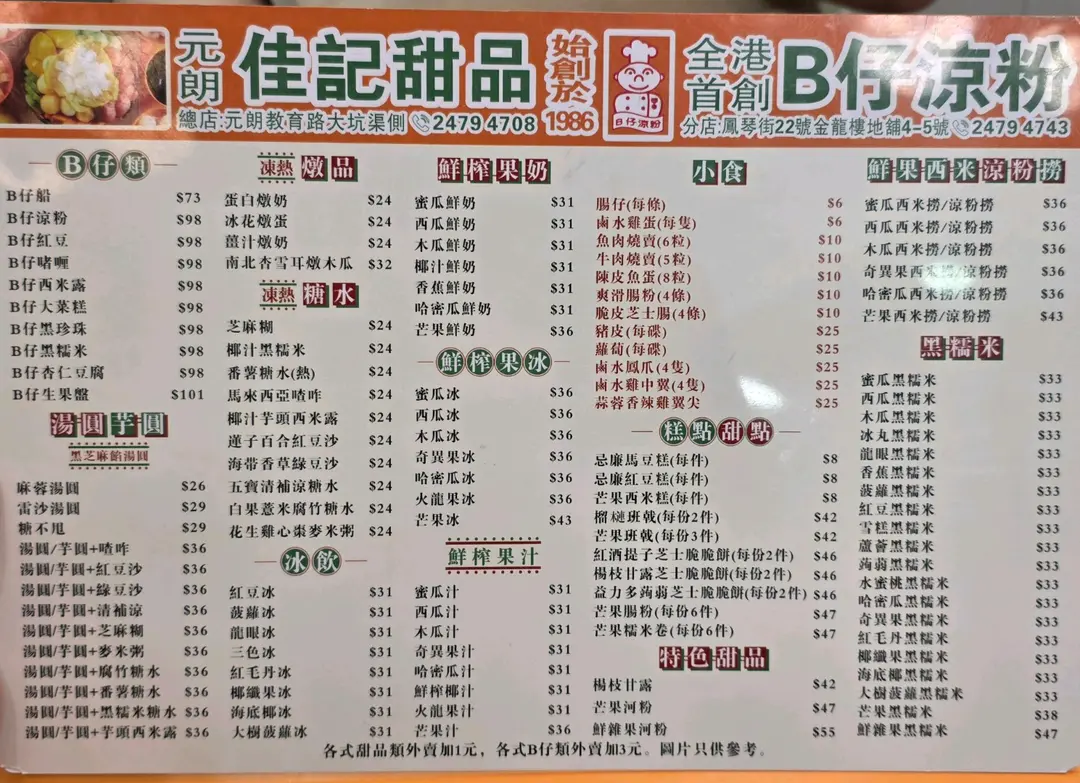 元朗 佳記甜品 始創於1986
總店:元朗教育路大坑渠側 2479 4708
B仔涼粉
全港首創 B仔涼粉
分店:鳳琴街22號金龍樓地舖4-5號 2479 4743
B仔類
B仔船 $73
B仔涼粉 $98
B仔紅豆 $98
B仔啫喱 $98
B仔西米露 $98
B仔大菜糕 $98
B仔黑珍珠 $98
B仔黑糯米 $98
B仔杏仁豆腐 $98
B仔生果盤 $101
湯圓芋圓
黑芝麻餡湯圓
麻蓉湯圓 $26
雷沙湯圓 $29
糖不甩 $29
湯圓/芋圓+喳咋 $36
湯圓/芋圓+紅豆沙 $36
湯圓/芋圓+綠豆沙 $36
湯圓/芋圓+清補涼 $36
湯圓/芋圓+芝麻糊 $36
湯圓/芋圓+麥米粥 $36
湯圓/芋圓+腐竹糖水 $36
湯圓/芋圓+番薯糖水 $36
湯圓/芋圓+黑糯米糖水 $36
湯圓/芋圓+芋頭西米露 $36
凍熱 燉品
蛋白燉奶 $24
冰花燉蛋 $24
薑汁燉奶 $24
南北杏雪耳燉木瓜 $32
凍熱 糖水
芝麻糊 $24
椰汁黑糯米 $24
番薯糖水(熱) $24
馬來西亞喳咋 $24
椰汁芋頭西米露 $24
蓮子百合紅豆沙 $24
海帶香草綠豆沙 $24
五寶清補涼糖水 $24
白果薏米腐竹糖水 $24
花生雞心棗麥米粥 $24
冰飲
紅豆冰 $31
菠蘿冰 $31
龍眼冰 $31
三色冰 $31
紅毛丹冰 $31
椰纖果冰 $31
海底椰冰 $31
大樹菠蘿冰 $31
鮮榨果奶
蜜瓜鮮奶 $31
西瓜鮮奶 $31
木瓜鮮奶 $31
椰汁鮮奶 $31
香蕉鮮奶 $31
哈密瓜鮮奶 $31
芒果鮮奶 $36
鮮榨果冰
蜜瓜冰 $36
西瓜冰 $36
木瓜冰 $36
奇異果冰 $36
哈密瓜冰 $36
火龍果冰 $36
芒果冰 $43
鮮榨果汁
蜜瓜汁 $31
西瓜汁 $31
木瓜汁 $31
奇異果汁 $31
哈密瓜汁 $31
鮮榨椰汁 $31
火龍果汁 $31
芒果汁 $36
小食
腸仔(每條) $6
鹵水雞蛋(每隻) $6
魚肉燒賣(6粒) $10
牛肉燒賣(5粒) $10
陳皮魚蛋(8粒) $10
爽滑腸粉(4條) $10
脆皮芝士腸(4條) $10
豬皮(每碟) $25
蘿蔔(每碟) $25
鹵水鳳爪(4隻) $25
鹵水雞中翼(4隻) $25
蒜蓉香辣雞翼尖 $25
糕點甜點
忌廉馬豆糕(每件) $8
忌廉紅豆糕(每件) $8
芒果西米糕(每件) $8
榴槤班戟(每份2件) $42
芒果班戟(每份3件) $42
紅酒提子芝士脆脆餅(每份2件) $46
楊枝甘露芝士脆脆餅(每份2件) $46
益力多蒟蒻芝士脆脆餅(每份2件) $46
芒果腸粉(每份6件) $47
芒果糯米卷(每份6件) $47
特色甜品
楊枝甘露 $42
芒果河粉 $47
鮮雜果河粉 $55
鮮果西米涼粉撈
蜜瓜西米撈/涼粉撈 $36
西瓜西米撈/涼粉撈 $36
木瓜西米撈/涼粉撈 $36
奇異果西米撈/涼粉撈 $36
哈密瓜西米撈/涼粉撈 $36
芒果西米撈/涼粉撈 $43
黑糯米
蜜瓜黑糯米 $33
西瓜黑糯米 $33
木瓜黑糯米 $33
冰丸黑糯米 $33
龍眼黑糯米 $33
香蕉黑糯米 $33
菠蘿黑糯米 $33
紅豆黑糯米 $33
雪糕黑糯米 $33
蘆薈黑糯米 $33
蒟蒻黑糯米 $33
水蜜桃黑糯米 $33
哈密瓜黑糯米 $33
奇異果黑糯米 $33
紅毛丹黑糯米 $33
椰纖果黑糯米 $33
海底椰黑糯米 $33
大樹菠蘿黑糯米 $33
芒果黑糯米 $38
鮮雜果黑糯米 $47
各式甜品類外賣加1元，各式B仔類外賣加3元。圖片只供參考。